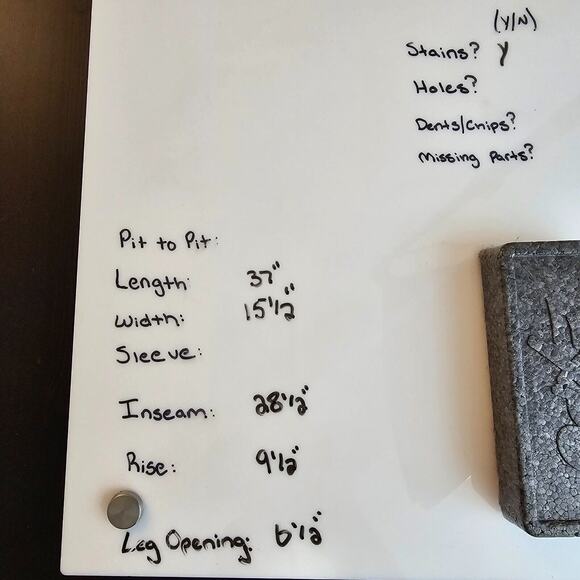 (Y/N)
Stains? Y
Holes?
Dents/Chips?
Missing Parts?
Pit to Pit:
Length: 37"
Width: 15 1/2"
Sleeve:
Inseam: 28 1/2"
Rise: 9 1/2"
Leg Opening: 6 1/2"